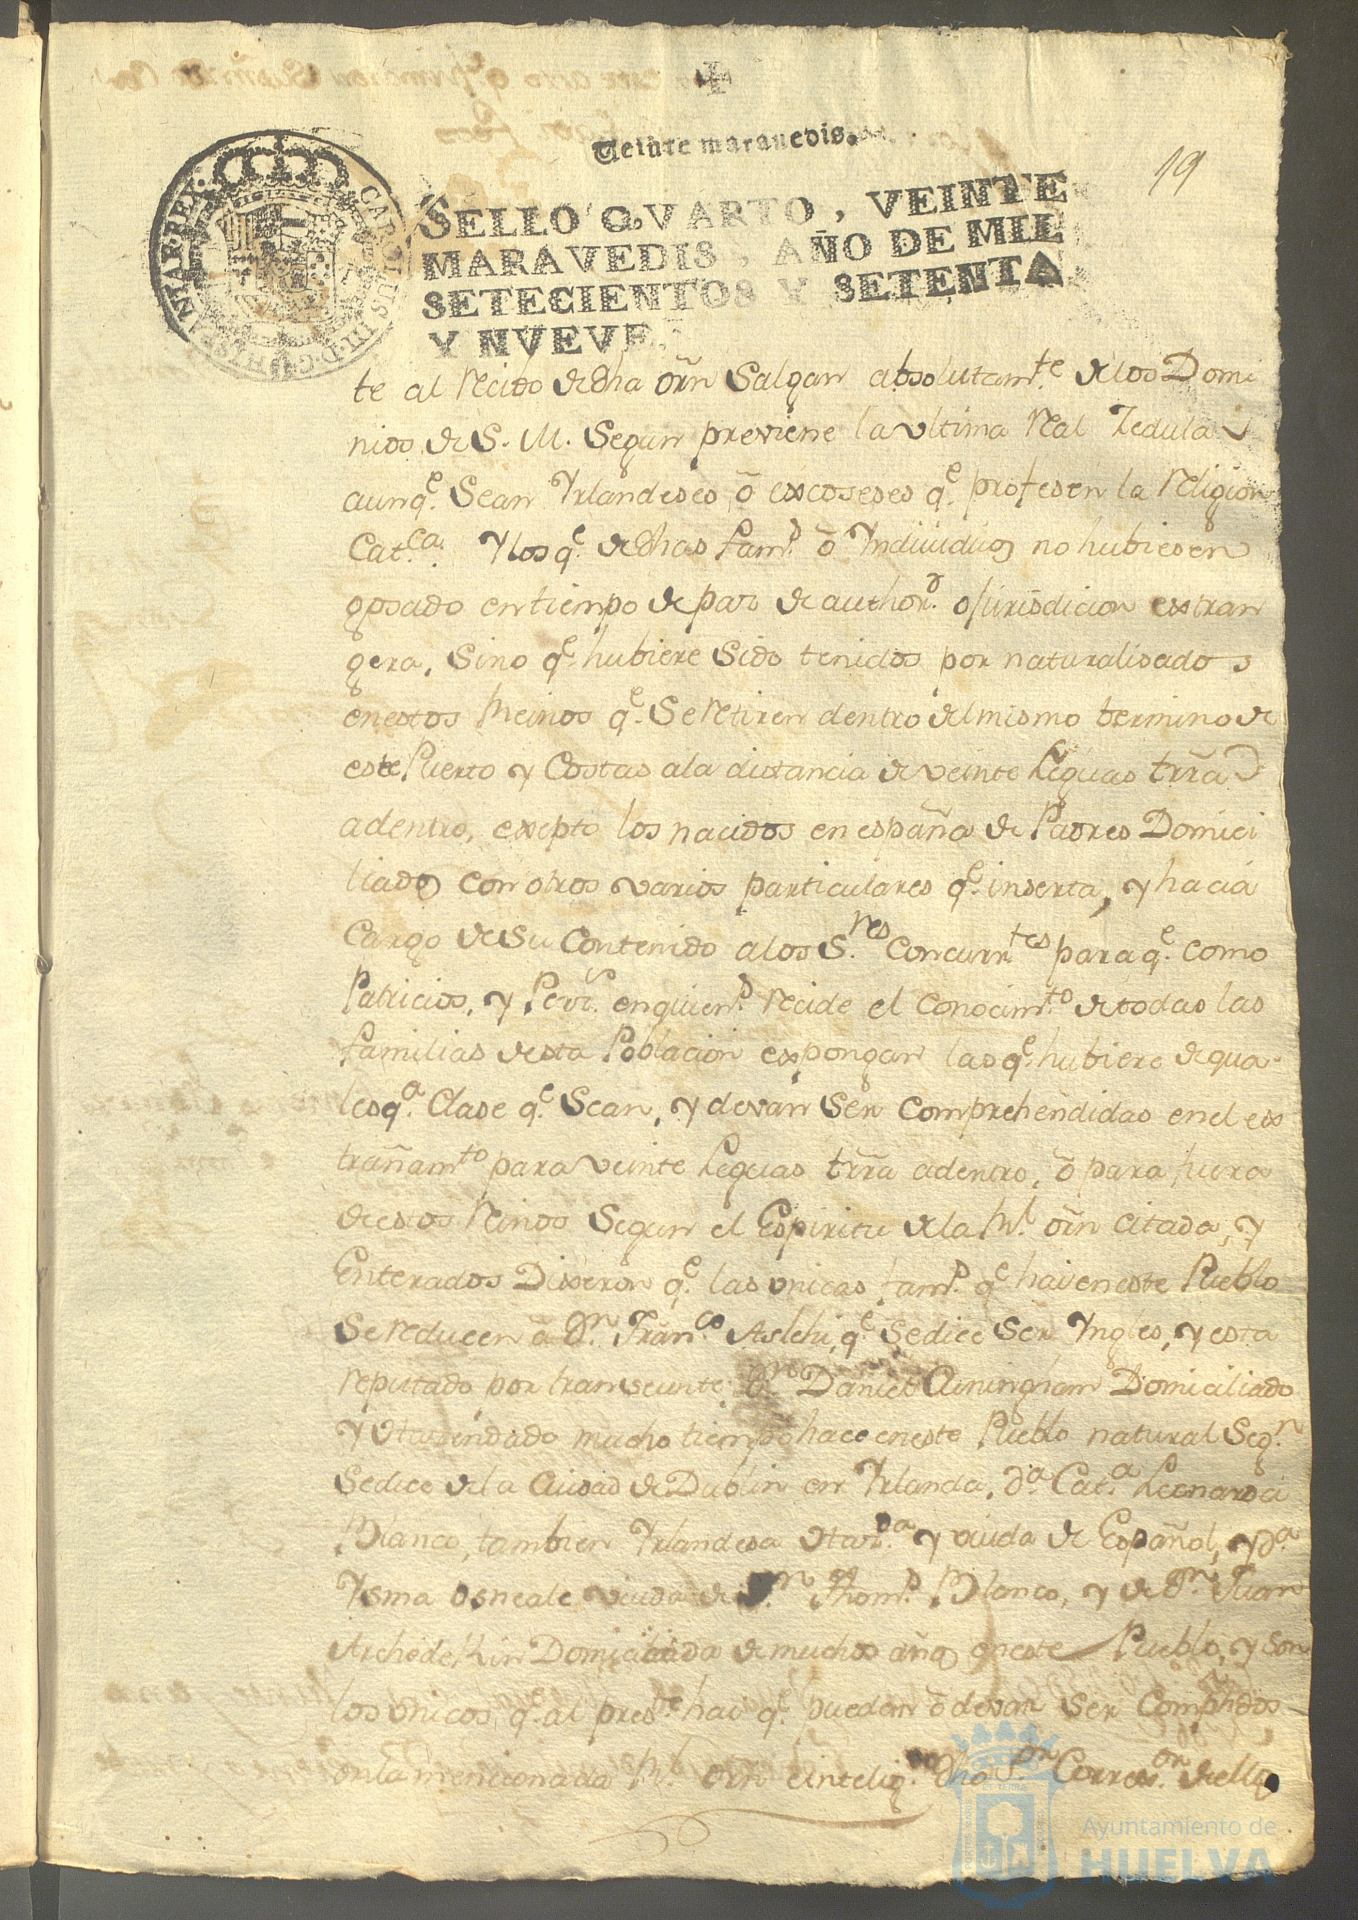 Veinte maravedis.
19
CAROLUS III. D. G. HISPANIAR. REX.
SELLO QVARTO, VEINTE
MARAVEDIS, AÑO DE MIL
SETECIENTOS Y SETENTA
Y NVEVE.
te al recivo de dha orñ Salgan absolutamte. de los Domi
nios de S. M. Segun previene la vltima Real Zedula
aunqe. Sean Yrlandeses, õ excoseses qe. profesen la religion
Catca. y los qe. de dhas fams. õ Yndividuos no hubiesen
gosado en tiempo de paz de author. o jurisdicion extran
gera, Sino qe. hubiere Sido tenidos por naturalisados
en estos Reinos qe. Se retiren dentro del mismo termino de
este Puerto y Costas ala distancia de veinte Leguas trrã
adentro, exepto los nacidos en españa de Padres Domici
liados con otros varios particulares qe. inserta, y hacia
Cargo de Su Contenido alos Sres. Concurrtes para qe. como
Patricios, y en quiens. recide el Conocimto. de todas las
familias desta Poblacion expongan las qe. hubiere de qua-
lesqa. Clase qe. Sean, y devan Ser Comprehendidas en el ex
trañamto para veinte Leguas trrã adentro, õ para fuera
de estos Reinos Segun el Espiritu de la Rl. orñ citada, y
Enterados Dixeron qe. las vnicas fams. qe. hai en este Pueblo
Se reducen ã Dn. Franco. Aslchi, qe. Se dice Ser Yngles, y esta
reputado por transeunte, Dn. Daniel Cuningham Domiciliado
y Havendado mucho tiempo hace en este Pueblo natural Segn.
Se dice de la Ciudad de Dublin en Yrlanda, Da. Cata. Leonarda
Blanco, tambien Yrlandesa y viuda de Español, y Da.
Ysma Osneale viuda de Dn. Thoms. Blanco, y de Dn. Juan
Archedekin Domiciliada de muchos años en este Pueblo, y Son
los vnicos, qe. al preste. hai qe. puedan õ devan Ser Comphdos
en la mencionada Rl. orñ dho Sor. Corrern. de ello
Ayuntamiento de
HUELVA